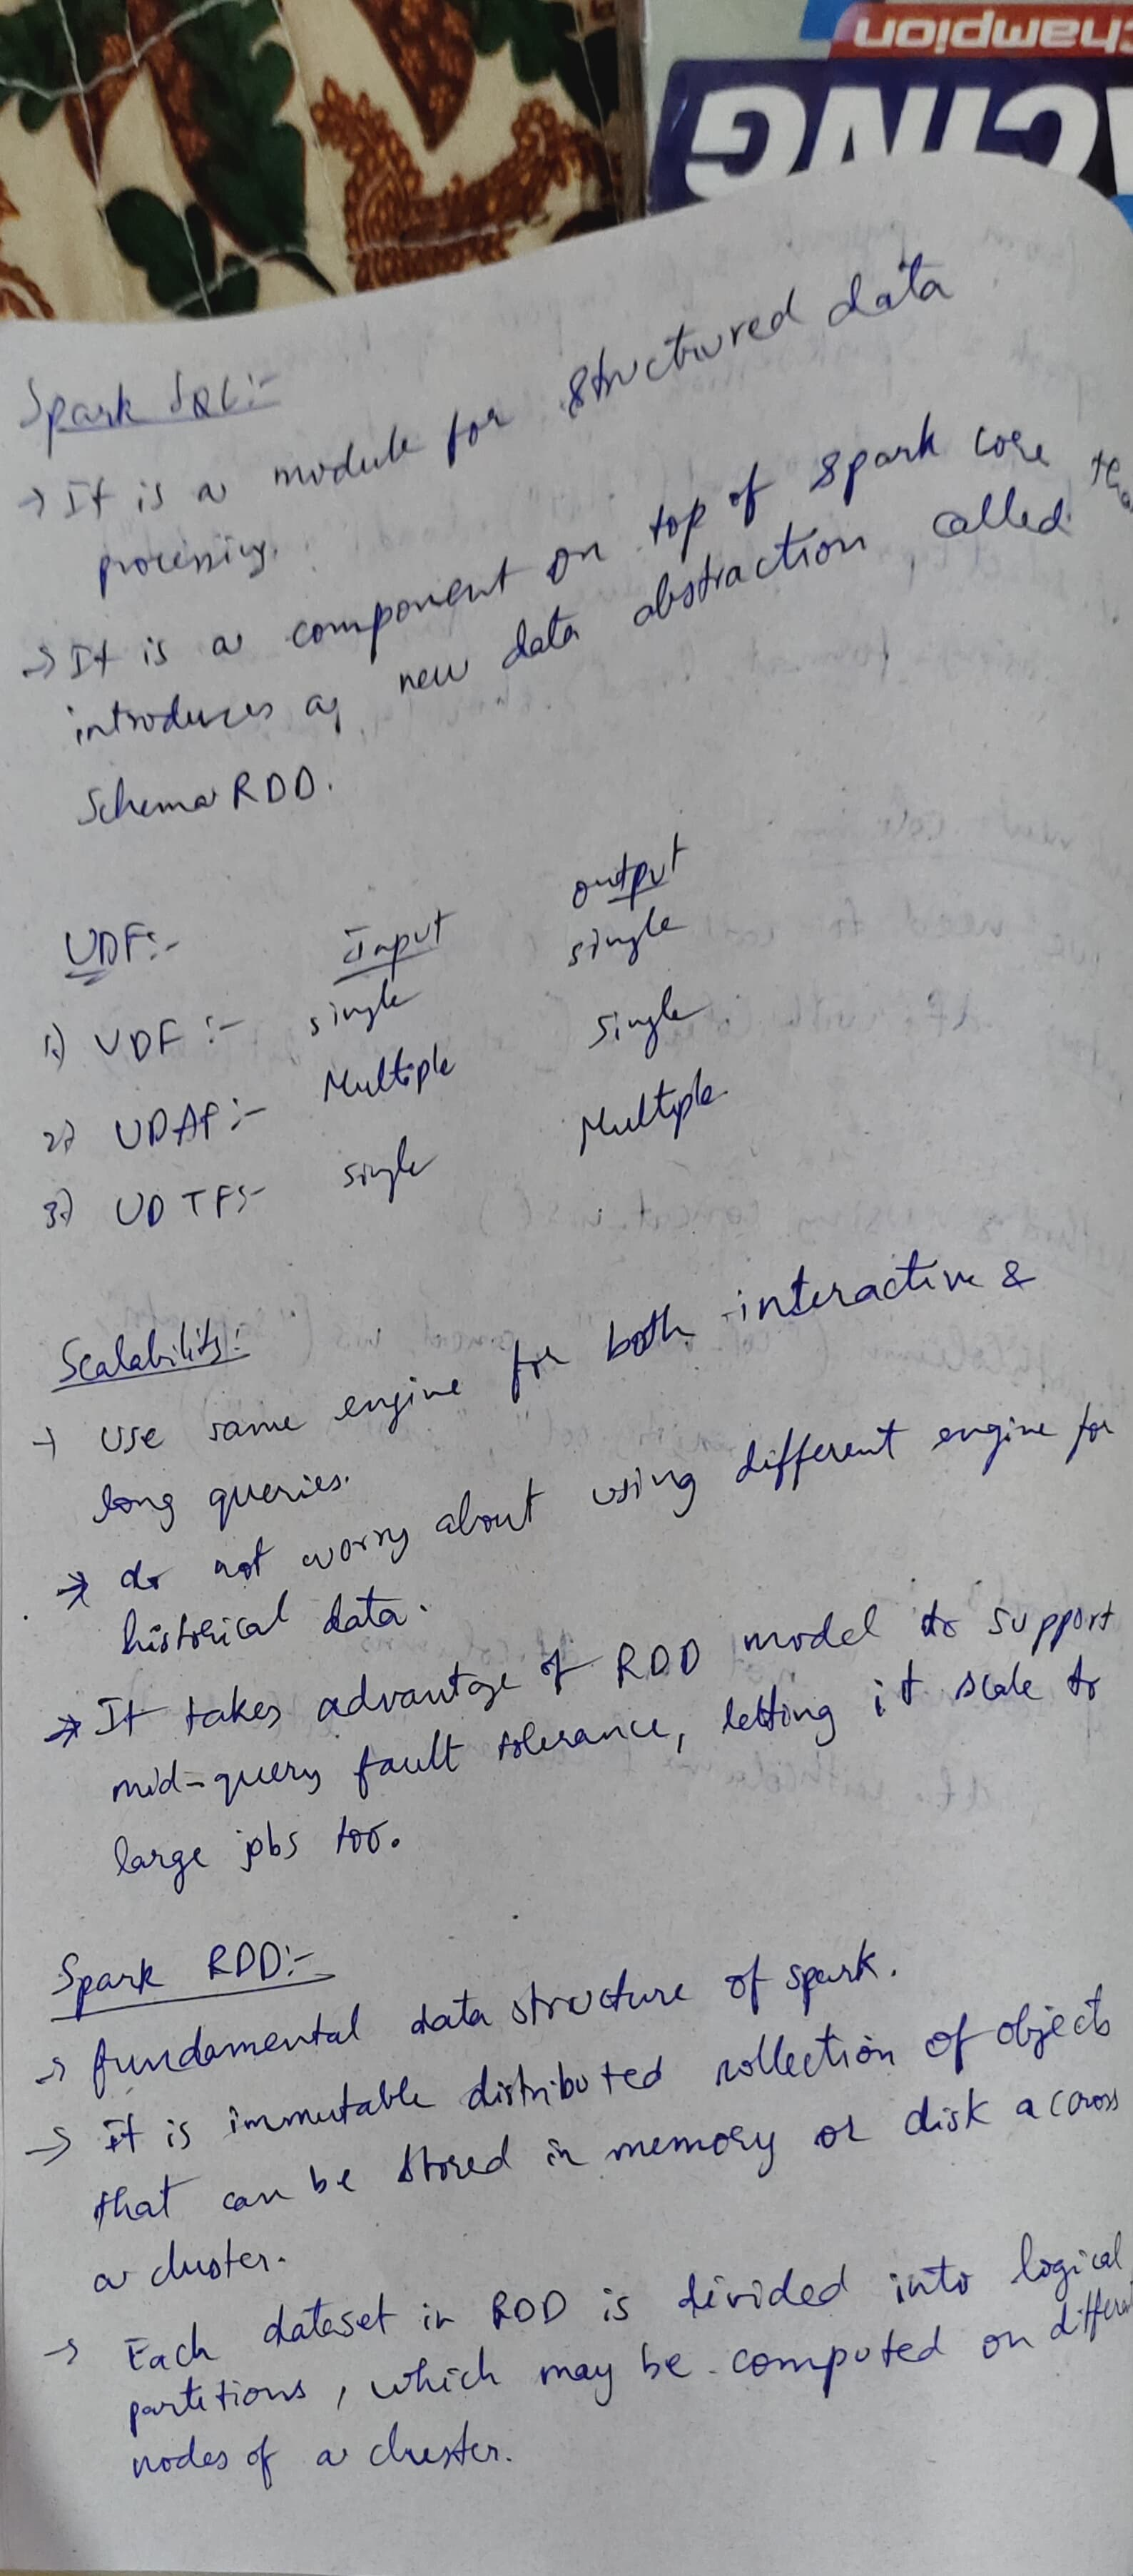 Champion
Spark SQL:-
→ It is a module for structured data
processing.
→ It is a component on top of spark core tha
introduces a new data abstraction called
Schema RDD.
UDF:- Input output
1) UDF :- single single
2) UDAF :- Multiple Single
3) UDTF:- single Multiple
Scalability:
→ Use same engine for both interactive &
long queries.
→ do not worry about using different engine for
historical data.
→ It takes advantage of RDD model to support
mid-query fault tolerance, letting it scale to
large jobs too.
Spark RDD:-
→ fundamental data structure of spark.
→ It is immutable distributed collection of objects
that can be stored in memory or disk across
a cluster.
→ Each dataset in RDD is divided into logical
partitions, which may be computed on different
nodes of a cluster.